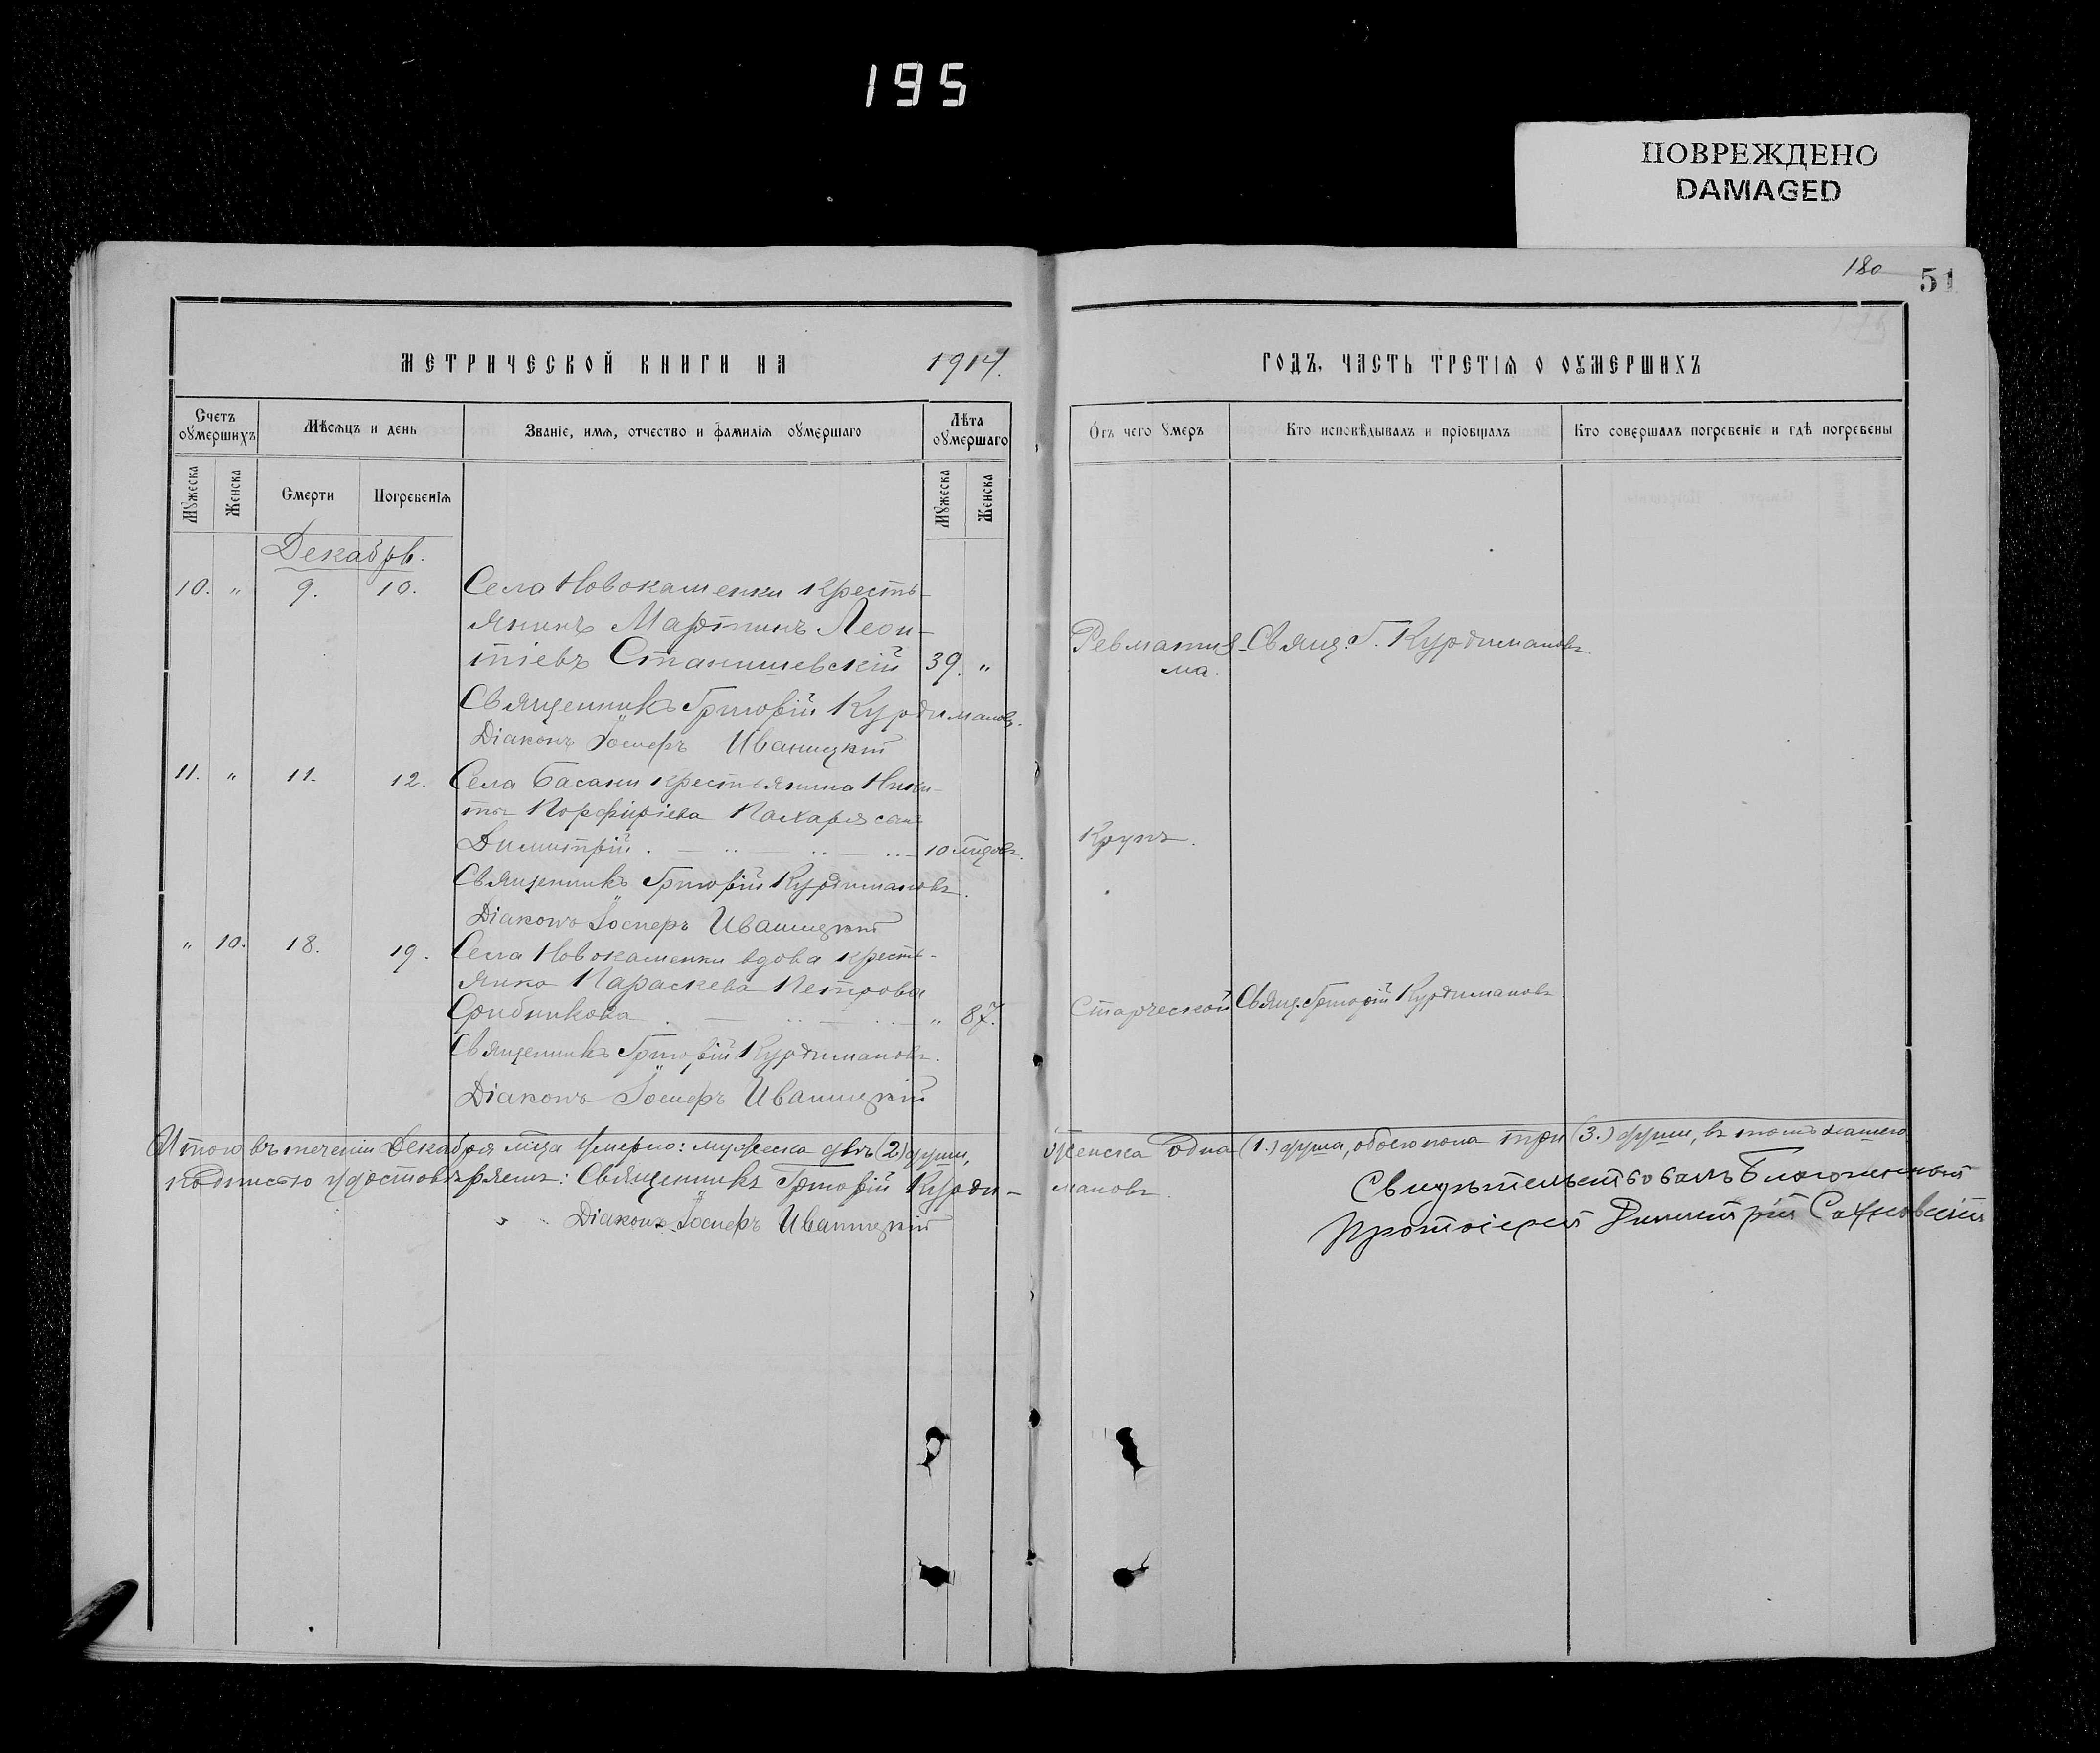 195
ПОВРЕЖДЕНО
DAMAGED
180
51
МЕТРИЧЕСКОЙ КНИГИ НА 1914.
ГОДЪ, ЧАСТЬ ТРЕТІѦ О ОУМЕРШИХЪ
Счетъ оумершихъ
Мѣсѧцъ и день
Званіе, имѧ, отчество и фамиліѧ оумершаго
Лѣта оумершаго
Отъ чего оумеръ
Кто исповѣдывалъ и пріобщалъ
Кто совершалъ погребеніе и гдѣ погребены
Мужеска
Женска
Смерти
Погребеніѧ
Мужеска
Женска
Декабрь.
10. " 9. 10. Села Новокаменки кресть-
янинъ Мартинъ Леон-
тіевъ Станишевскій 39. " Ревматиз- Свящ. Г. Курдимановъ
ма.
Священникъ Григорій Курдимановъ.
Діаконъ Іосифъ Иваницкій
11. " 11. 12. Села Басани крестьянина Ники-
ты Порфиріева Пахаря сынъ
Димитрій. 10 мцовъ. Крупъ.
Священникъ Григорій Курдимановъ.
Діаконъ Іосифъ Иваницкій
" 10. 18. 19. Села Новокаменки вдова кресть-
янка Параскева Петрова
Грибникова " 87. Старческой Свящ. Григорій Курдимановъ
Священникъ Григорій Курдимановъ.
Діаконъ Іосифъ Иваницкій
Итого въ теченіи Декабря мца умерло: мужеска двѣ (2) души, женска одна (1.) душа, обоего пола три (3.) души, въ томъ нашею
подписью удостовѣряемъ: Священникъ Григорій Курди-
мановъ.
Діаконъ Іосифъ Иваницкій
Свидѣтельствовалъ Благочинный
Протоіерей Димитрій